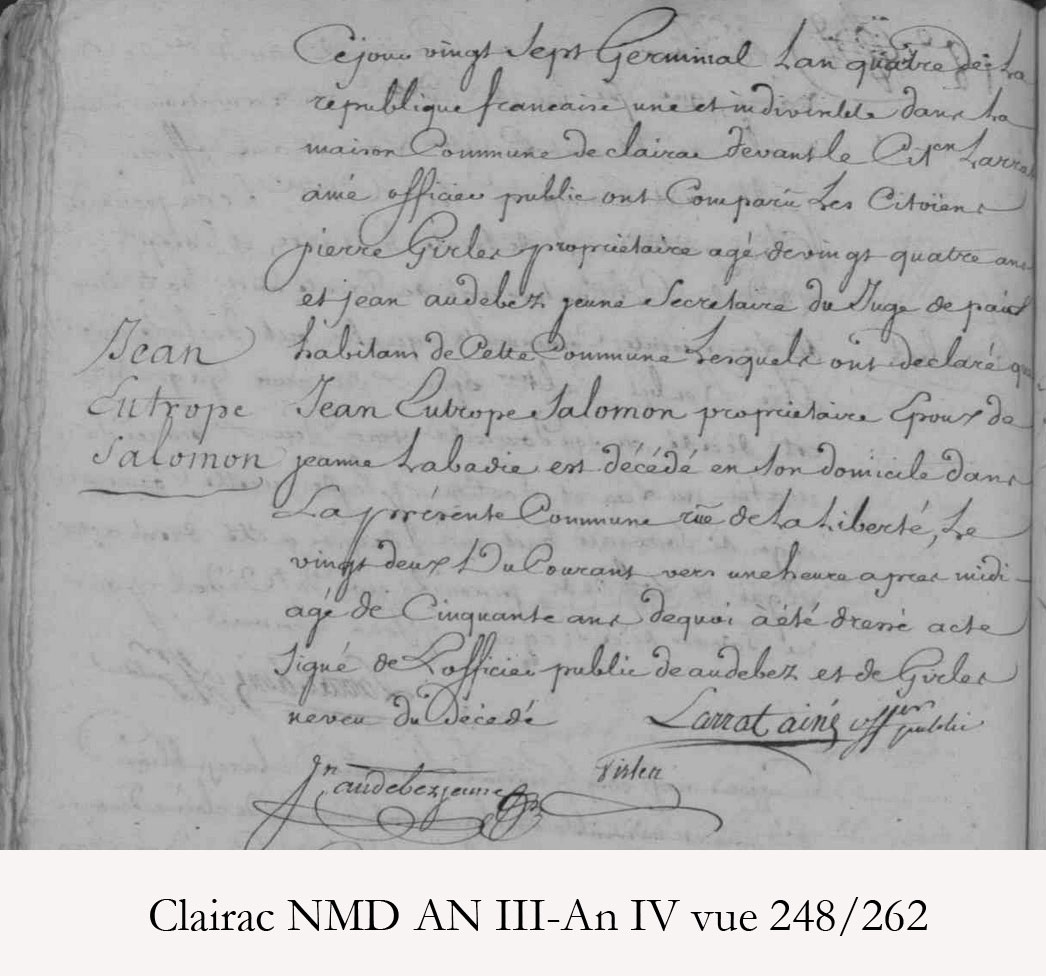 Ce jour vingt Sept Germinial Lan quatre de La
république francaise une et indivisible dans La
maison Commune de clairac devant le Cit.en Larrat
ainé officier public ont Comparû Les Citoïens
pierre Girles propriétaire agé de vingt quatre ans
et jean audebez jeune Secretaire du Juge de paix
habitans de Cette Commune Lesquels ont declaré que
Jean
Eutrope
Salomon
Jean Eutrope Salomon propriétaire Epoux de
jeanne Labadie est décédé en Son domicile dans
La présente Commune rüe de La Liberté, Le
vingt deux Du Courant vers une heure apres midi
agé de Cinquante ans dequoi à été dressé acte
Signé de L'officier public de audebez et de Girles
neveu du Décédé
Larrat ainé offier public
Girles
Jn audebez jeune
Clairac NMD AN III-An IV vue 248/262